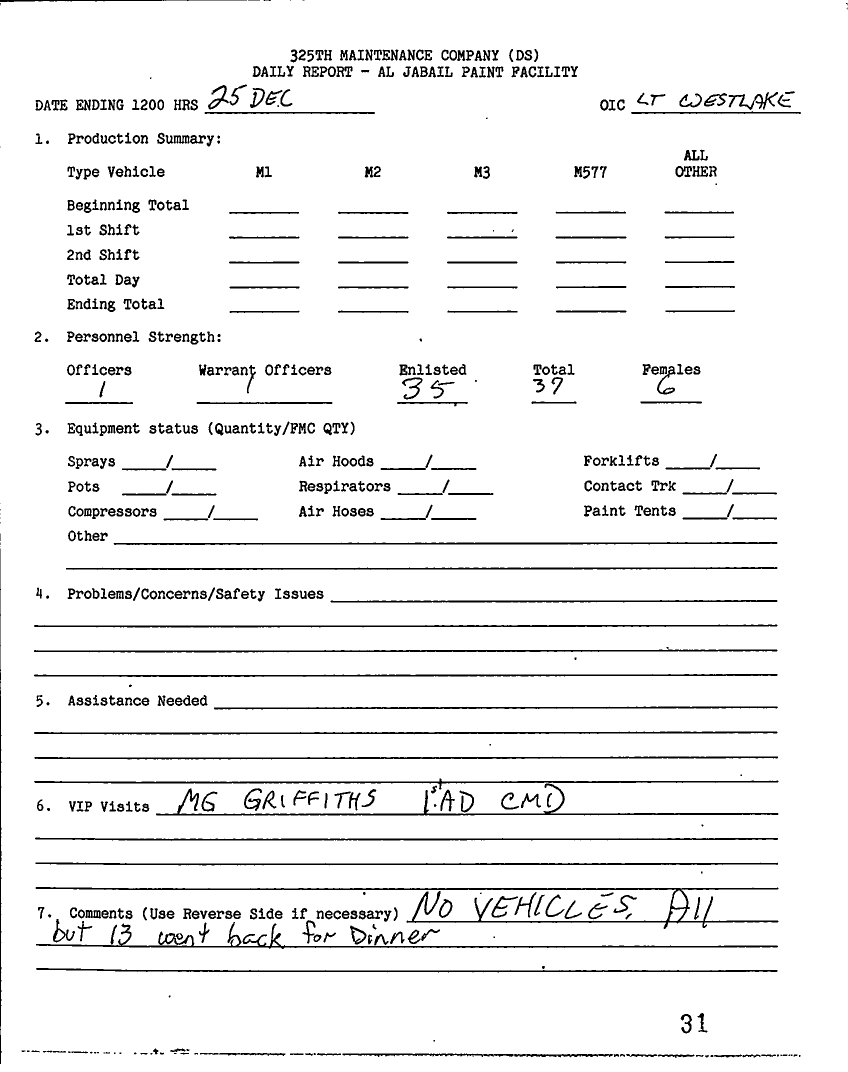 325TH MAINTENANCE COMPANY (DS)
DAILY REPORT - AL JABAIL PAINT FACILITY
DATE ENDING 1200 HRS 25 DEC OIC LT WESTLAKE
1. Production Summary:
ALL
Type Vehicle M1 M2 M3 M577 OTHER
Beginning Total
1st Shift
2nd Shift
Total Day
Ending Total
2. Personnel Strength:
Officers Warrant Officers Enlisted Total Females
1 1 35 37 6
3. Equipment status (Quantity/FMC QTY)
Sprays ____/____ Air Hoods ____/____ Forklifts ____/____
Pots ____/____ Respirators ____/____ Contact Trk ____/____
Compressors ____/____ Air Hoses ____/____ Paint Tents ____/____
Other
4. Problems/Concerns/Safety Issues
5. Assistance Needed
6. VIP Visits MG GRIFFITHS 1st AD CMD
7. Comments (Use Reverse Side if necessary) NO VEHICLES. All
but 13 went back for Dinner
31